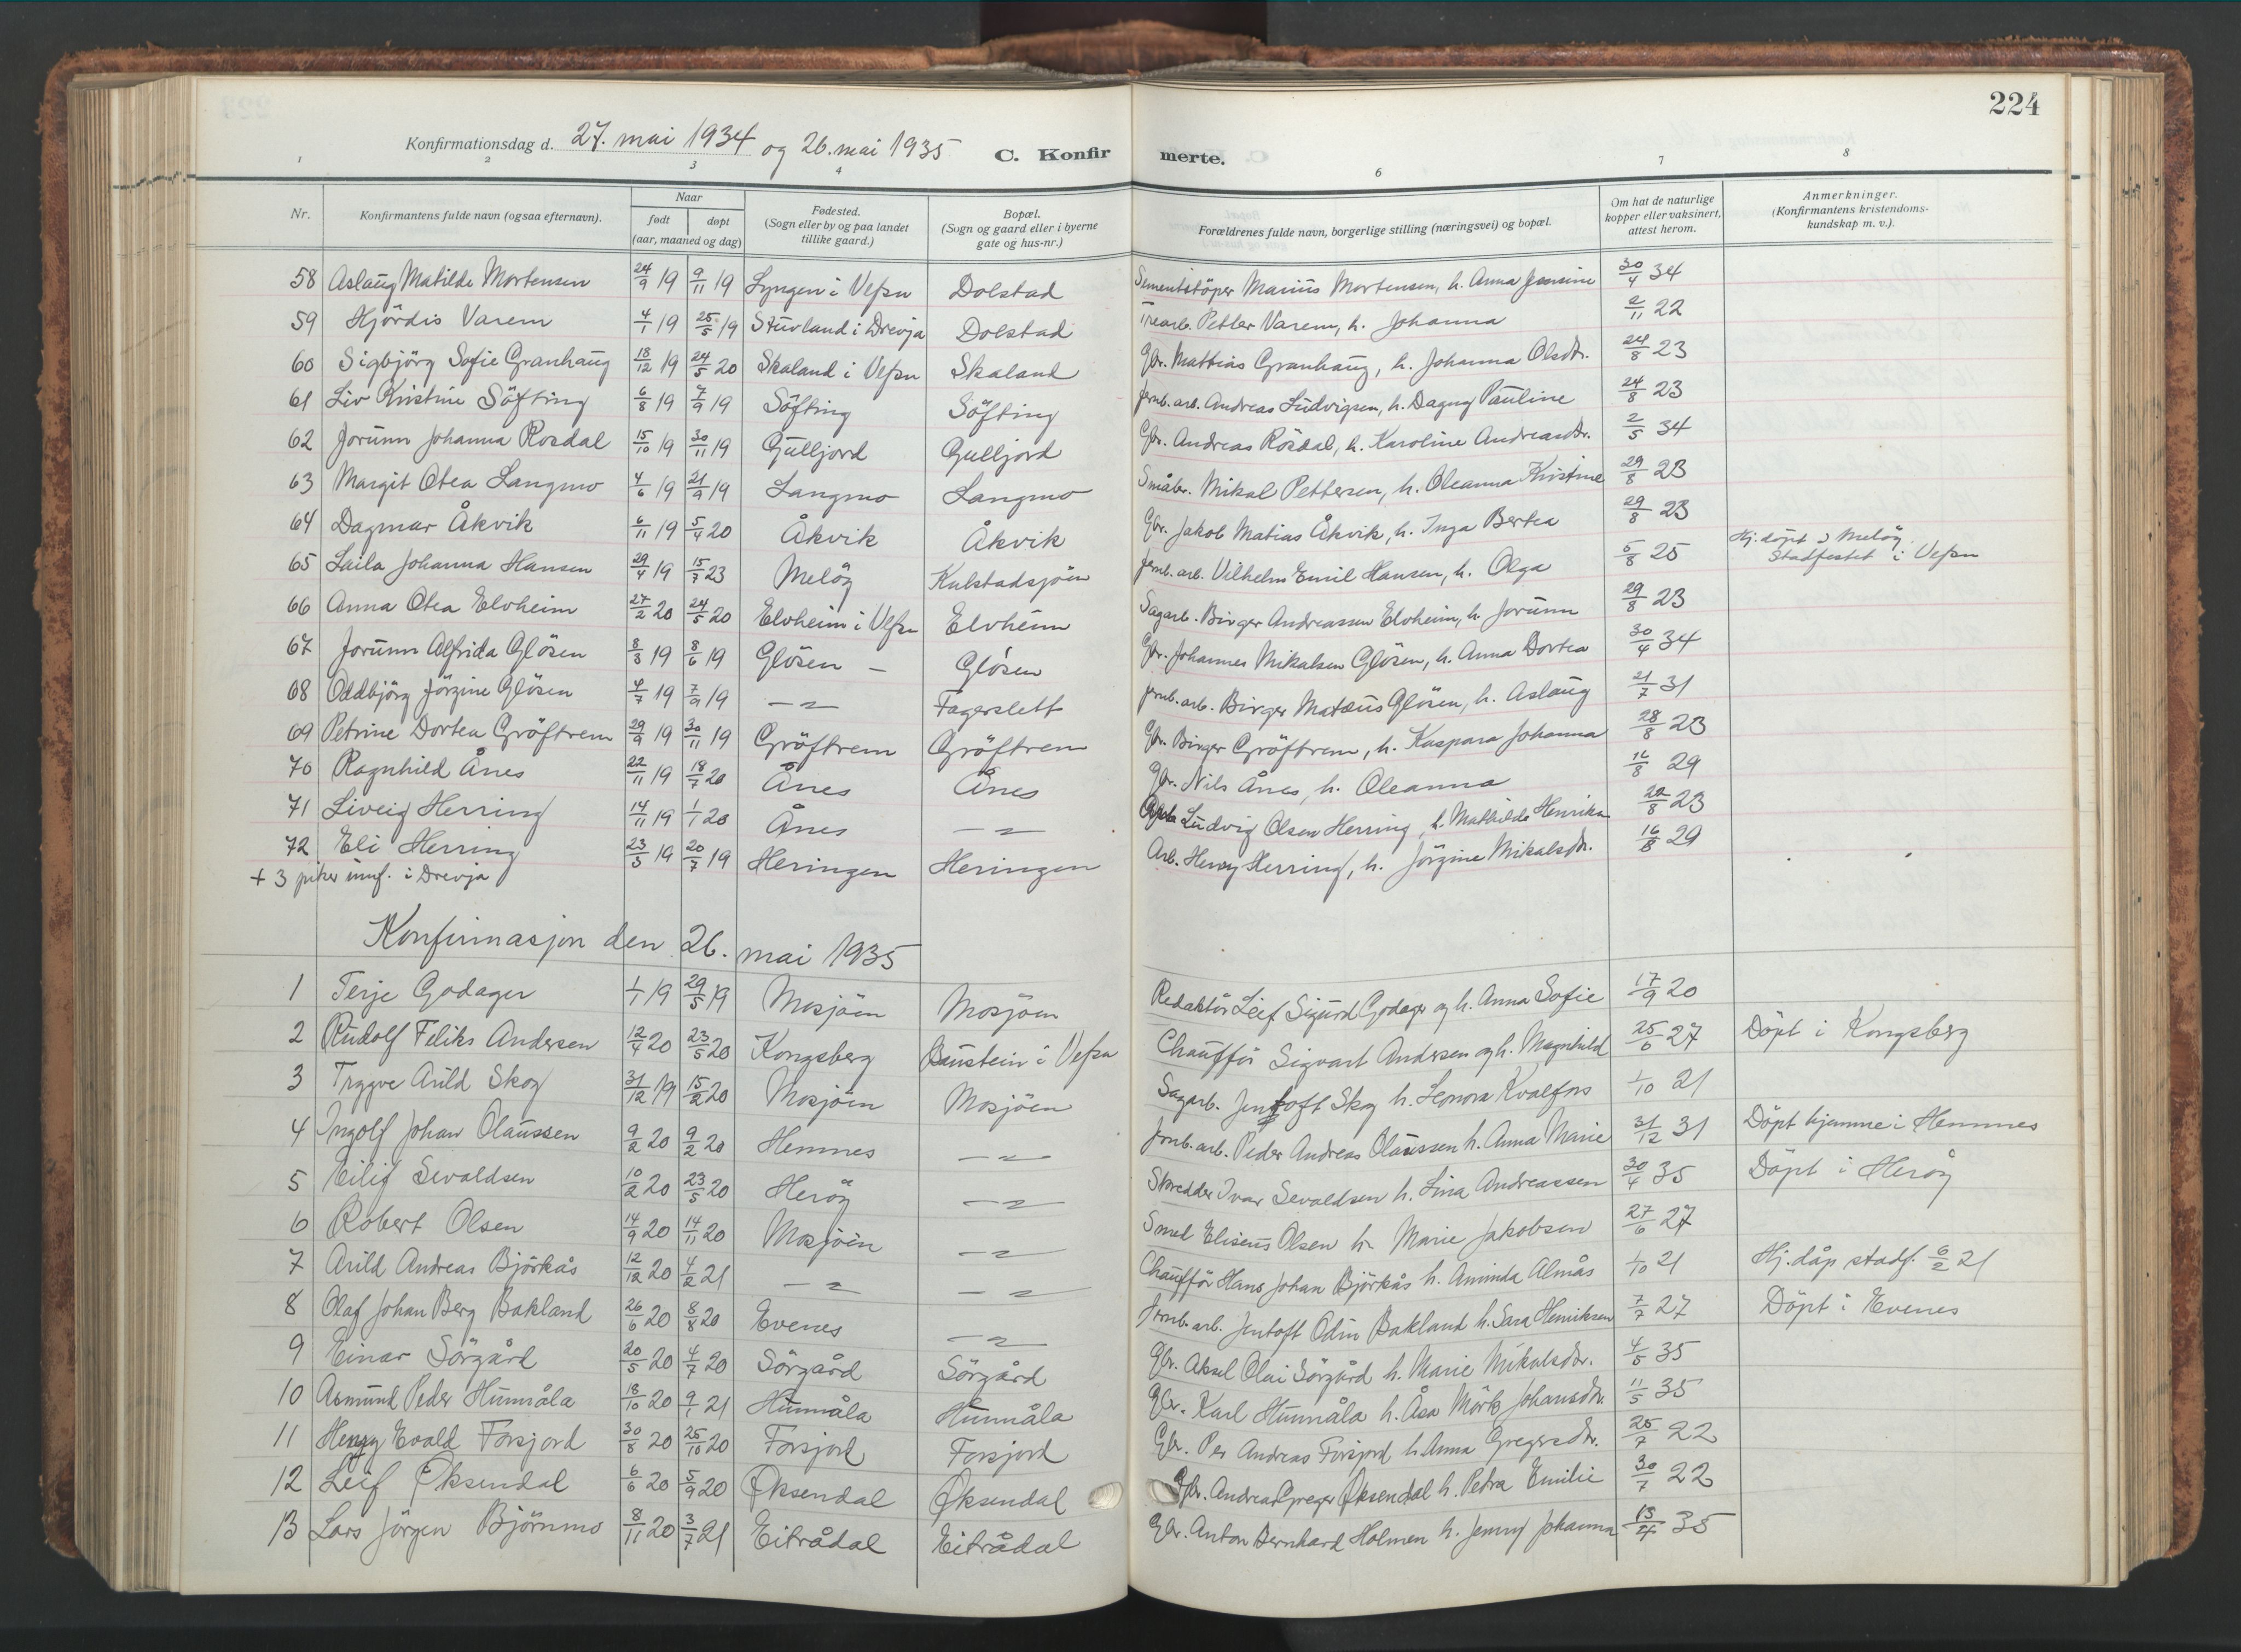 224
Konfirmationsdag d. 27. mai 1934 og 26. mai 1935 C. Konfirmerte.
1 2 3 4 6 7 8
Nr. Konfirmantens fulde navn (ogsaa efternavn). Naar født døpt (aar, maaned og dag) Fødested. (Sogn eller by og paa landet tillike gaard.) Bopæl. (Sogn og gaard eller i byerne gate og hus-nr.) Forældrenes fulde navn, borgerlige stilling (næringsvei) og bopæl. Om hat de naturlige kopper eller vaksinert, attest herom. Anmerkninger. (Konfirmantens kristendoms-kundskap m. v.).
58 Aslaug Matilde Mortensen 24/9 19 9/11 19 Lyngen i Vefsn Dolstad Sementstöper Marius Mortensen, h. Anna Jensine 30/4 34
59 Hjördis Varem 4/1 19 25/5 19 Stuvland i Drevja Dolstad Trearb. Petter Varem, h. Johanna 2/11 22
60 Sigbjörg Sofie Granhaug 18/12 19 24/5 20 Skaland i Vefsn Skaland Gbr. Mattias Granhaug, h. Johanna Olsdtr. 24/8 23
61 Liv Kristine Söfting 6/8 19 7/9 19 Söfting Söfting Jernb. arb. Andreas Ludvigsen, h. Dagny Pauline 24/8 23
62 Jorunn Johanna Rosdal 15/10 19 30/11 19 Gulljord Gulljord Gbr. Andreas Rosdal, h. Karoline Andreasdtr. 2/5 34
63 Margit Otea Langmo 4/6 19 21/9 19 Langmo Langmo Småbr. Mikal Pettersen, h. Oleanna Kristine 29/8 23
64 Dagmar Åkvik 6/11 19 5/4 20 Åkvik Åkvik Gbr. Jakob Matias Åkvik, h. Inga Bertea 29/8 23
65 Laila Johanna Hansen 29/4 19 15/7 23 Melöy Kulstadsjöen Jernb. arb. Vilhelm Emil Hansen, h. Olga 5/8 25 Hj. döpt i Melöy. Stadfestet i Vefsn
66 Anna Otea Elvheim 27/2 20 24/5 20 Elvheim i Vefsn Elvheim Sagarb. Birger Andreassen Elvheim, h. Jorunn 29/8 23
67 Jorunn Alfrida Glösen 8/3 19 8/6 19 Glösen - Glösen Gbr. Johannes Mikalsen Glösen, h. Anna Dortea 30/4 34
68 Oddbjörg Jörgine Glösen 4/7 19 7/9 19 -"- Fagerslett Jernb. arb. Birger Matæus Glösen, h. Aslaug 21/7 31
69 Petrine Dortea Gröftrem 29/9 19 30/11 19 Gröftrem Gröftrem Gbr. Birger Gröftrem, h. Kaspara Johanna 28/8 23
70 Ragnhild Ånes 22/11 19 18/7 20 Ånes Ånes Gbr. Nils Ånes, h. Oleanna 16/8 29
71 Liveig Herring 14/11 19 1/1 20 Ånes -"- Ludvig Olsen Herring, h. Mathilde Henrikn 22/8 23
72 Eli Herring 23/3 19 20/7 19 Heringen Heringen Arb. Henry Herring, h. Jörgine Mikalsdtr. 16/8 29
+ 3 piker innf. i Drevja
Konfirmasjon den 26. mai 1935
1 Terje Godager 1/1 19 29/5 19 Mosjöen Mosjöen Redaktör Leif Sigurd Godager og h. Anna Sofie 17/9 20
2 Rudolf Feliks Andersen 12/4 20 23/5 20 Kongsberg Baustein i Vefsn Chaufför Sigvart Andersen og h. Magnhild 25/6 27 Döpt i Kongsberg
3 Trygve Arild Skog 31/12 19 15/2 20 Mosjöen Mosjöen Sagarb. Jentoft Skog h. Leonora Kvalfors 1/10 21
4 Ingolf Johan Olaussen 9/2 20 9/2 20 Hemnes -"- Jernb. arb. Peder Andreas Olaussen h. Anna Marie 31/12 31 Döpt hjemme i Hemnes
5 Eilif Sevaldsen 10/2 20 23/5 20 Heröy -"- Skredder Ivar Sevaldsen h. Lina Andreassen 30/4 35 Döpt i Heröy
6 Robert Olsen 14/9 20 14/11 20 Mosjöen -"- Smed Eliseus Olsen h. Marie Jakobsen 27/6 27
7 Arild Andreas Björkås 12/12 20 4/2 21 -"- -"- Chaufför Hans Johan Björkås h. Aminda Almås 1/10 21 Hj. dåp stadf. 6/2 21
8 Olaf Johan Berg Bakland 26/6 20 8/8 20 Evenes -"- Jernb. arb. Jentoft Odin Bakland h. Sara Henriksen 7/7 27 Döpt i Evenes
9 Einar Sörgård 20/5 20 4/7 20 Sörgård Sörgård Gbr. Aksel Olai Sörgård h. Marie Mikalsdtr. 4/5 35
10 Asmund Peder Hunnåla 18/10 20 9/1 21 Hunnåla Hunnåla Gbr. Karl Hunnåla h. Åsa Mörk Johansdtr. 11/5 35
11 Henry Evald Forsjord 30/8 20 25/10 20 Forsjord Forsjord Gbr. Per Andreas Forsjord h. Anna Gregersdtr. 25/7 22
12 Leif Øksendal 6/6 20 5/9 20 Øksendal Øksendal Gbr. Andreas Greger Øksendal h. Petra Emilie 30/7 22
13 Lars Jörgen Björnmo 8/11 20 3/7 21 Eitrådal Eitrådal Gbr. Anton Bernhard Holmen h. Jenny Johanna 13/4 35